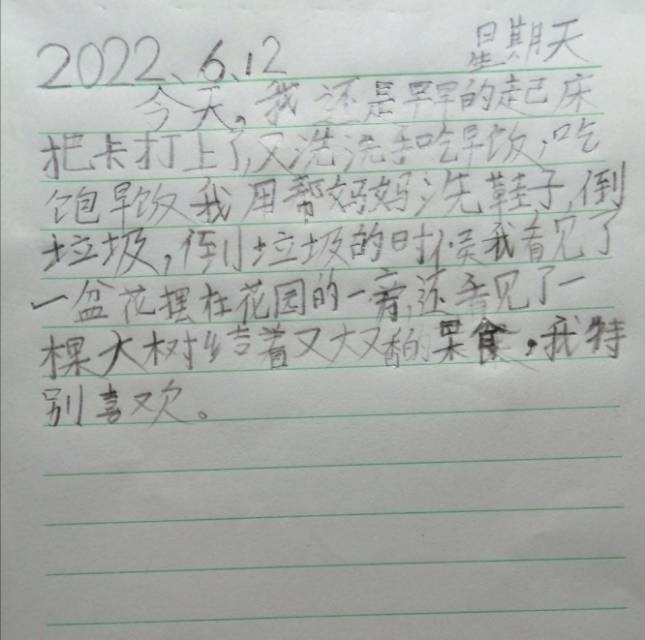 2022、6.12 星期天
今天,我还是早早的起床
把卡打上了,又洗洗手吃早饭,吃
饱早饭我用帮妈妈洗鞋子,倒
垃圾,倒垃圾的时候我看见了
一盆花摆在花园的一旁,还看见了一
棵大树结着又大又香的果食,我特
别喜欢。